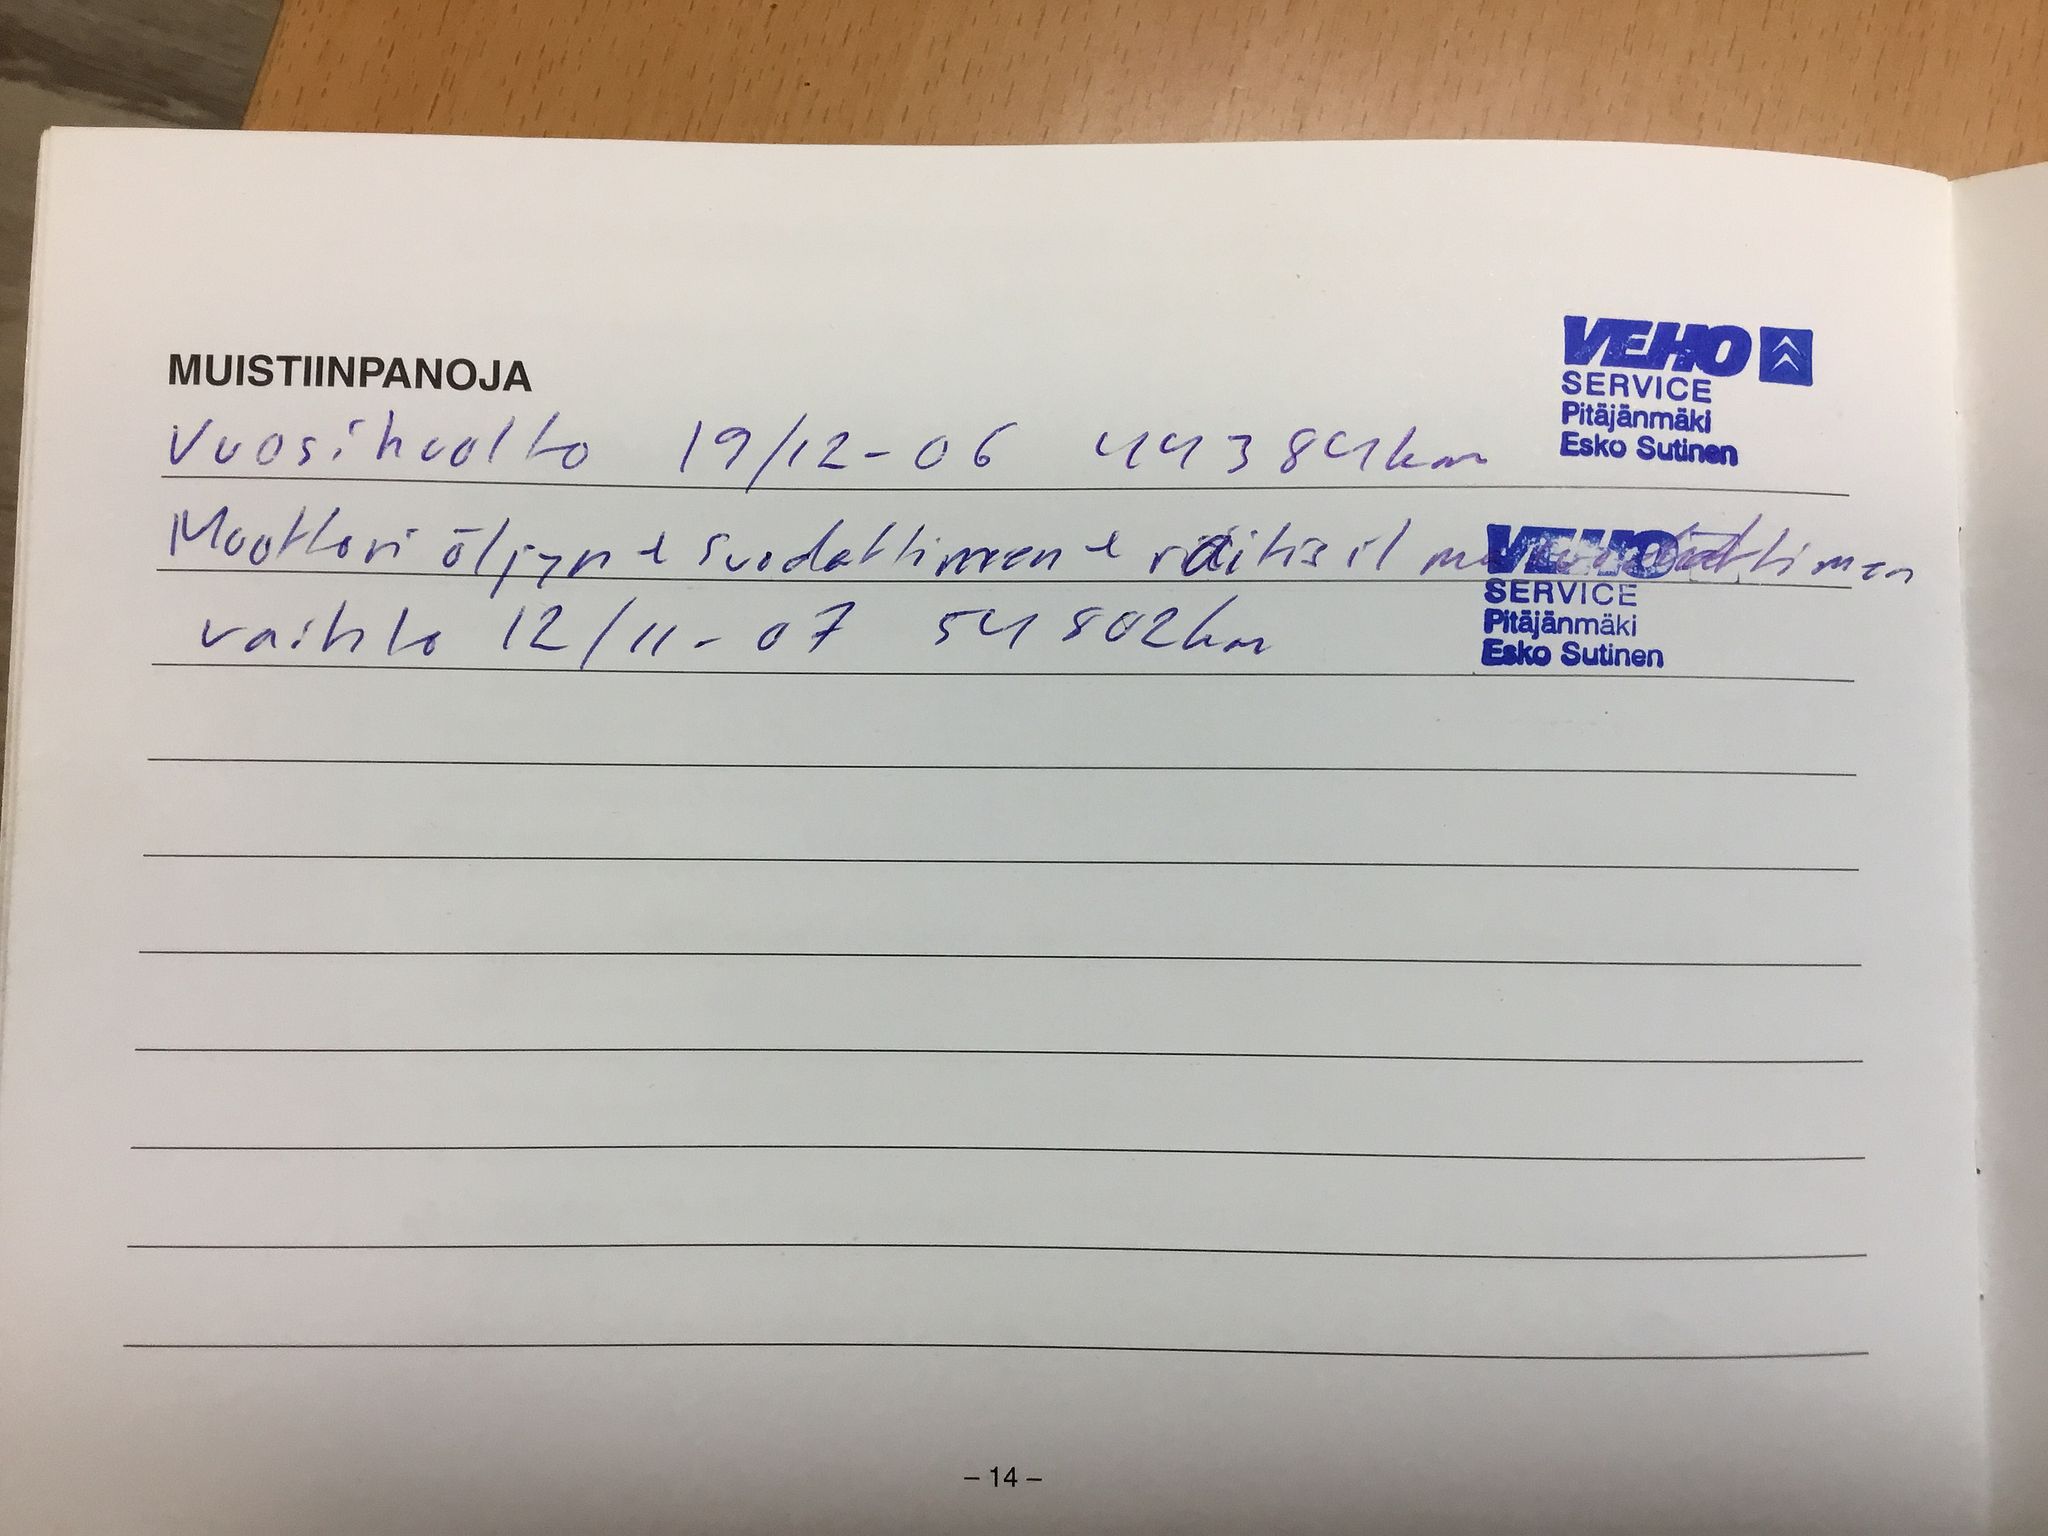 VEHO
SERVICE
Pitäjänmäki
Esko Sutinen
MUISTIINPANOJA
Vuosihuolto 19/12-06 44384km
Moottori öljyn + suodattimen + raitisilmasuodattimen
VEHO
SERVICE
Pitäjänmäki
Esko Sutinen
vaihto 12/11-07 54802km
– 14 –